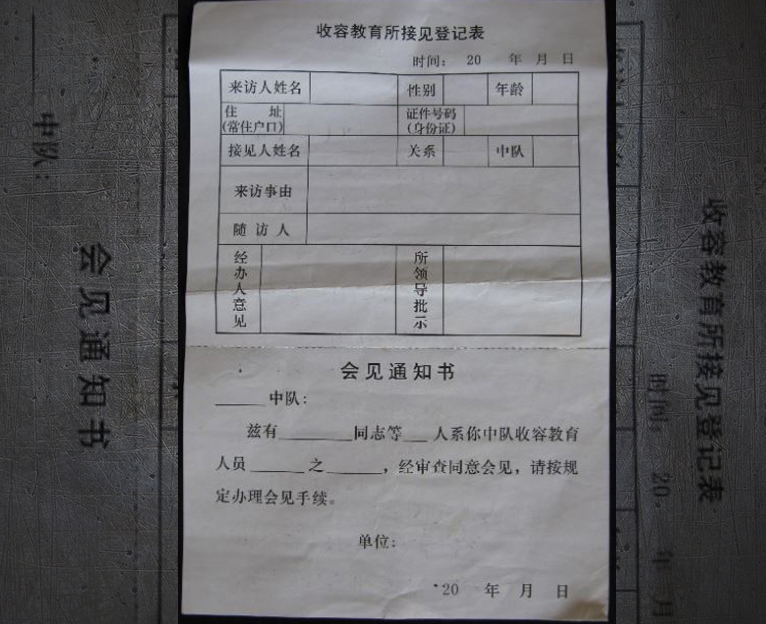 收容教育所接见登记表
时间: 20 年 月 日
来访人姓名 性别 年龄
住 址 (常住户口) 证件号码 (身份证)
接见人姓名 关系 中队
来访事由
随 访 人
经办人意见 所领导批示
会见通知书
______中队:
兹有________同志等___人系你中队收容教育
人员______之______,经审查同意会见,请按规
定办理会见手续。
单位:
20 年 月 日
中队:
会见通知书
收容教育所接见登记表
时间: 20 年 月